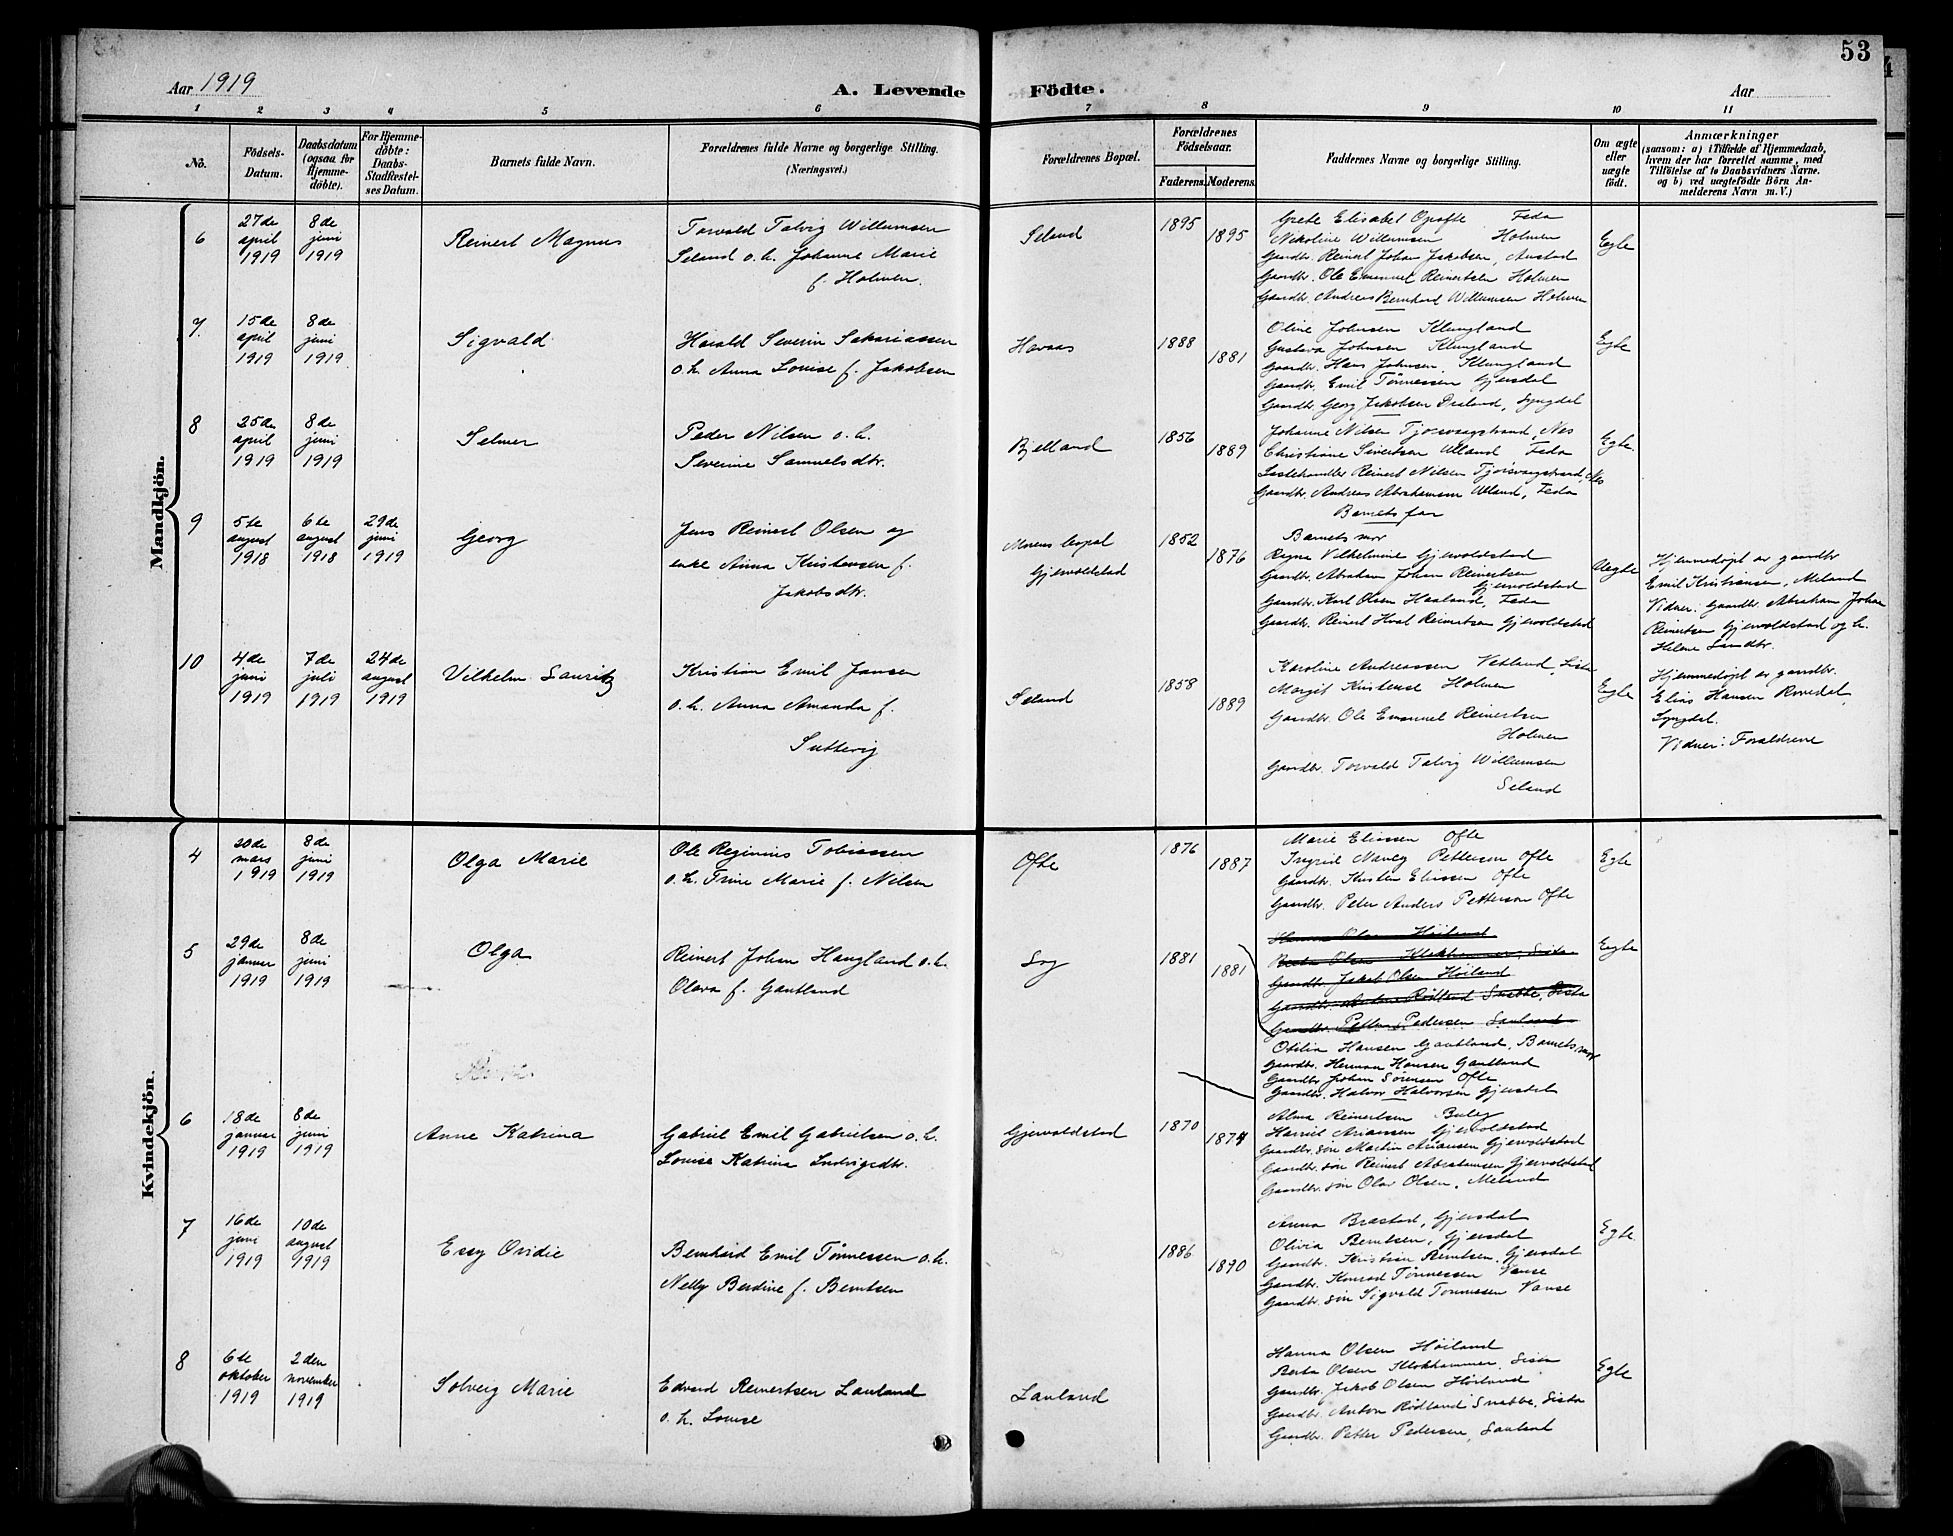 53
Aar 1919
A. Levende Födte.
Aar
1 2 3 4 5 6 7 8 9 10 11
Nö.
Födsels-Datum.
Daabsdatum (ogsaa for Hjemme-döbte).
For Hjemme-döbte: Daabs-Stadfæstel-ses Datum.
Barnets fulde Navn.
Forældrenes fulde Navne og borgerlige Stilling. (Næringsvei.)
Forældrenes Bopæl.
Forældrenes Födselsaar.
Faderens. Moderens.
Faddernes Navne og borgerlige Stilling.
Om ægte eller uægte födt.
Anmærkninger
(saasom: a) i Tilfælde af Hjemmedaab,
hvem der har forrettet samme, med
Tilföielse af to Daabsvidners Navne.
og b) ved uægtefödte Börn An-
melderens Navn m. V.)
Mandkjön.
6
27de april 1919
8de juni 1919
Reinert Magnus
Torvald Talvig Willumsen
Seland o. h. Johanne Marie
f. Holmen.
Seland
1895
1895
Grete Elisabet Opofte Feda
Nikoline Willumsen Holmen
Gaardbr. Reinert Johan Jakobsen, Austad
Gaardbr. Ole Emanuel Reinertsen Holmen
Gaardbr. Andreas Bernhard Willumsen Holmen
Egte
7.
15de april 1919
8de juni 1919
Sigvald
Harald Severin Sakariassen
o.h. Anna Louise f. Jakobsen
Havaas
1888
1881
Oline Johnsen Klungland
Gustava Johnsen Klungland
Gaardbr. Hans Johnsen, Klungland
Gaardbr. Emil Tønnessen Gjersdal
Gaardbr. Georg Jakobsen Lyngdal
Egte
8
25de april 1919
8de juni 1919
Selmer
Peder Nilsen o. h.
Severine Samuelsdtr.
Bjelland
1856
1889
Johanne Nilsen Tjorsvaagstrand, Nes
Christiane Sivertsen Ulland, Feda
Reinert Nilsen Tjorsvaagstrand, Nes
Gaardbr. Andreas Abrahamsen Ulland, Feda
Barnets far
Egte.
9
5te august 1918
6te august 1918
29de juni 1919
Georg
Jens Reinert Olsen og
enke Anna Kristensen f.
Jakobsdtr.
Morens bopæl
Gjervoldstad
1852
1876
Barnets mor
Regna Vilhelmine Gjervoldstad
Gaardbr. Abraham Johan Reinertsen
Gjervoldstad
Gaardbr. Karl Olsen Haaland, Feda
Gaardbr. Reinert Reinertsen Gjervoldstad
Uegte
Hjemmedøpt av gaardbr
Emil Kristensen, Meland
Vidner: Gaardbr. Abraham Johan
Reinertsen Gjervoldstad og h.
Helene
10
4de juni 1919
7de juli 1919
24de august 1919
Vilhelm Lauritz
Kristian Emil Jansen
o.h. Anna Amanda f.
Seland
1858
1889
Karoline Andreassen Vatland, Lista
Margit Kristense Holmen
Gaardbr. Ole Emanuel Reinertsen
Holmen
Gaardbr. Torvald Talvig Willumsen
Seland
Egte
Hjemmedøpt av gaardbr.
Elias Hansen
Lyngdal.
Vidner: Forældrene
Kvindekjön.
4
20de mars 1919
8de juni 1919
Olga Marie
Ole Reginius Tobiassen
o.h. Trine Marie f. Nilsen
Ofte
1876
1887
Marie Eliassen Ofte
Ingrid Petterson Ofte
Gaardbr. Kristen Eliassen Ofte
Gaardbr. Peter Anders Petterson Ofte
Egte
5
29de januar 1919
8de juni 1919
Olga
Reinert Johan Haugland o.h.
Olava f. Gautland
Log
1881
1881
Hanna Olsen Høiland
Berta Olsen Klokhammer, Lista
Gaardbr. Jakob Olsen Høiland
Gaardbr. Anton Rødland Snabbe, Lista
Gaardbr. Petter Pedersen Lauland
Otilia Hansen Gautland, Barnets mor
Gaardbr. Herman Hansen Gautland
Gaardbr. Johan Sørensen Ofte
Gaardbr. Halvor Halvorsen Gjersdal
Egte
6
18de januar 1919
8de juni 1919
Anne Katrina
Gabriel Emil Gabrielsen o.h.
Louise Katrina Ludvigsdtr.
Gjervoldstad
1870
1874
Alma Reinertsen
Harriet Ariansen Gjervoldstad
Gaardbr. søn Martin Ariansen Gjervoldstad
Gaardbr. søn Reinert Abrahamsen Gjervoldstad
Gaardbr. søn Olav Olsen, Meland
7
16de juni 1919
10de august 1919
Essy Ovidie
Bernhard Emil Tønnessen o.h.
Nelly Berdine f. Berntsen
1886
1890
Anna Brastad, Gjersdal
Olivia Berntsen, Gjersdal
Gaardbr. Kristian Berntsen, Gjersdal
Gaardbr. Konrad Tønnessen Vanse
Gaardbr. søn Sigvald Tønnessen Vanse
Egte
8
6te oktober 1919
2den november 1919
Solveig Marie
Edvard Reinertsen Lauland
o.h. Louise
Lauland
Hanna Olsen Høiland
Berta Olsen Klokhammer, Lista
Gaardbr. Jakob Olsen Høiland
Gaardbr. Anton Rødland Snabbe, Lista
Gaardbr. Petter Pedersen, Lauland
Egte